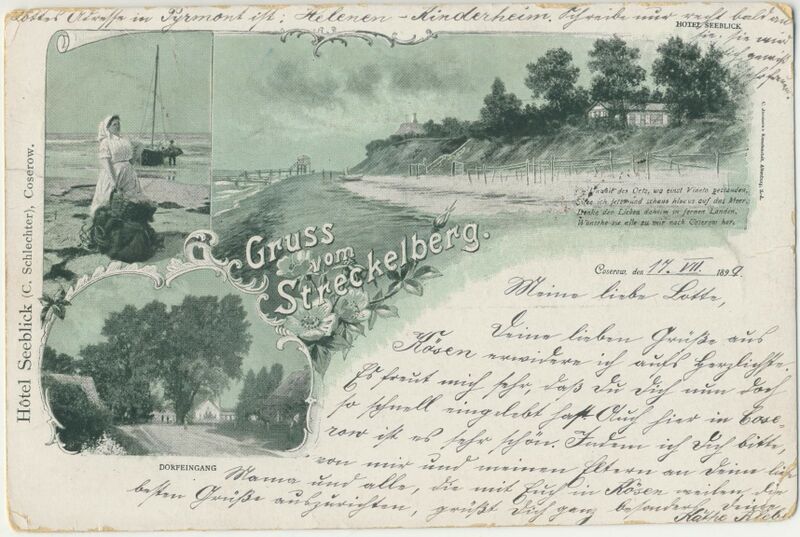 Lottes Adresse in Pyrmont ist: Helenen-Kinderheim. Schreibe nur recht bald an
sie, sie wird
sich gewiß
HOTEL SEEBLICK
Hôtel Seeblick (C. Schlechter), Coserow.
Gruss
vom
Streckelberg.
Unweit des Orts, wo einst Vineta gestanden,
Sitze ich jetzt und schaue hinaus auf das Meer,
Denke der Lieben daheim in fernen Landen,
Wünsche sie alle zu mir nach Coserow her.
Coserow, den 17. VII. 1899
Meine liebe Lotte,
Deine lieben Grüße aus
Kösen erwidere ich aufs Herzlichste.
Es freut mich sehr, daß Du Dich nun doch
so schnell eingelebt hast. Auch hier in Cose-
row ist es sehr schön. Indem ich Dich bitte,
von mir und meinen Eltern an Deine liebe
Mama und alle, die mit Euch in Kösen weilen, die
besten Grüße auszurichten, grüßt Dich ganz besonders Deine
Käthe
DORFEINGANG